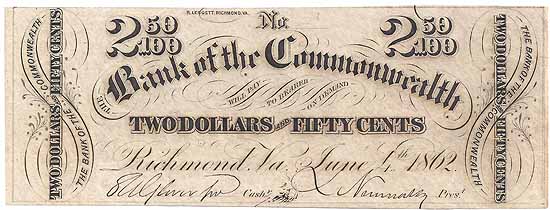 R. LEGGETT, RICHMOND, VA.
2 50/100 No. 2 50/100
THE Bank of the Commonwealth
WILL PAY TO BEARER ON DEMAND
TWO DOLLARS AND FIFTY CENTS
Richmond, Va. June 4th 1862
Cashr. Prest.
THE BANK OF THE COMMONWEALTH
TWO DOLLARS AND FIFTY CENTS
TWO DOLLARS AND FIFTY CENTS
THE BANK OF THE COMMONWEALTH